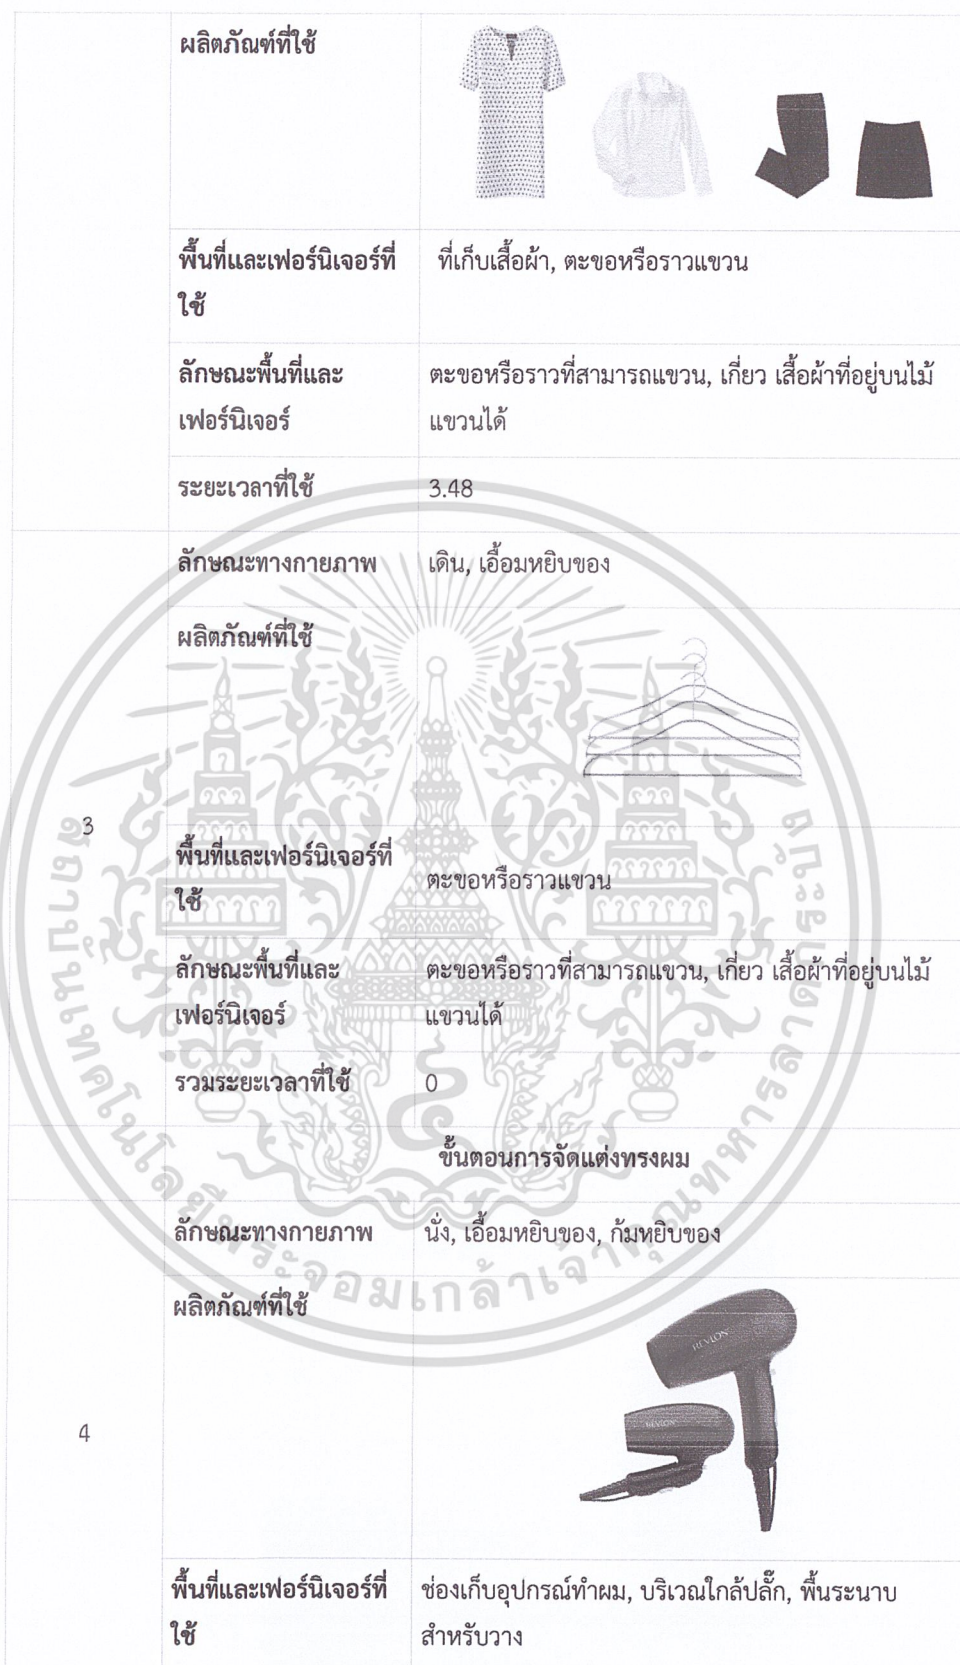 ผลิตภัณฑ์ที่ใช้
พื้นที่และเฟอร์นิเจอร์ที่
ใช้
ที่เก็บเสื้อผ้า, ตะขอหรือราวแขวน
ลักษณะพื้นที่และ
เฟอร์นิเจอร์
ตะขอหรือราวที่สามารถแขวน, เกี่ยว เสื้อผ้าที่อยู่บนไม้
แขวนได้
ระยะเวลาที่ใช้
3.48
3
ลักษณะทางกายภาพ
เดิน, เอื้อมหยิบของ
ผลิตภัณฑ์ที่ใช้
พื้นที่และเฟอร์นิเจอร์ที่
ใช้
ตะขอหรือราวแขวน
ลักษณะพื้นที่และ
เฟอร์นิเจอร์
ตะขอหรือราวที่สามารถแขวน, เกี่ยว เสื้อผ้าที่อยู่บนไม้
แขวนได้
รวมระยะเวลาที่ใช้
0
ขั้นตอนการจัดแต่งทรงผม
4
ลักษณะทางกายภาพ
นั่ง, เอื้อมหยิบของ, ก้มหยิบของ
ผลิตภัณฑ์ที่ใช้
REVLON
REVLON
พื้นที่และเฟอร์นิเจอร์ที่
ใช้
ช่องเก็บอุปกรณ์ทำผม, บริเวณใกล้ปลั๊ก, พื้นระนาบ
สำหรับวาง
สถาบันเทคโนโลยีพระจอมเกล้าเจ้าคุณทหารลาดกระบัง